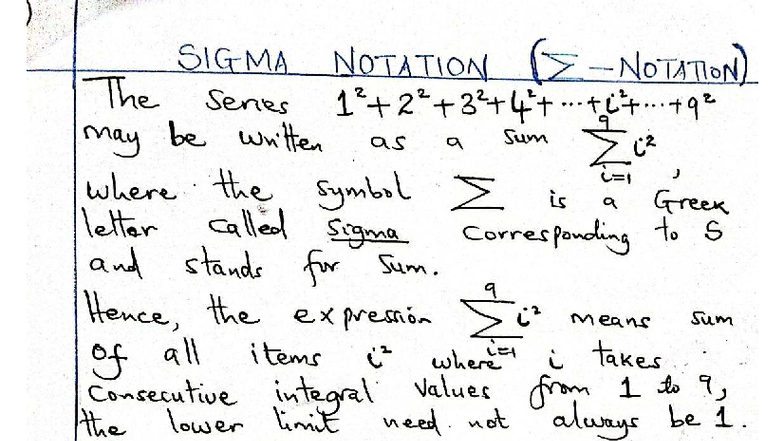 SIGMA NOTATION (Σ – NOTATION)
The series 1² + 2² + 3² + 4² + ... + i² + ... + 9²
may be written as a sum \sum_{i=1}^{9} i²,
where the symbol Σ is a Greek
letter called Sigma corresponding to S
and stands for sum.
Hence, the expression \sum_{i=1}^{9} i² means sum
of all items i² where i takes
consecutive integral values from 1 to 9,
the lower limit need not always be 1.